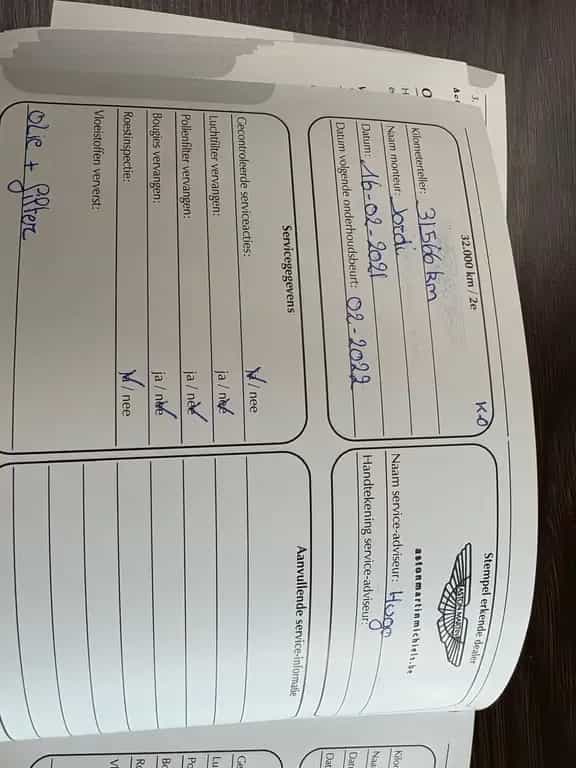 32.000 km / 2e
KD
Kilometerteller: 31566 km
Naam monteur: Jordi
Datum: 16-02-2021
Datum volgende onderhoudsbeurt: 02-2022
Stempel erkende dealer
ASTON MARTIN
astonmartinmichiels.be
Naam service-adviseur: Hugo
Handtekening service-adviseur:
Servicegegevens
Gecontroleerde serviceacties: ja / nee
Luchtfilter vervangen: ja / nee
Pollenfilter vervangen: ja / nee
Bougies vervangen: ja / nee
Roestinspectie: ja / nee
Vloeistoffen ververst:
Olie + filter
Aanvullende service-informatie